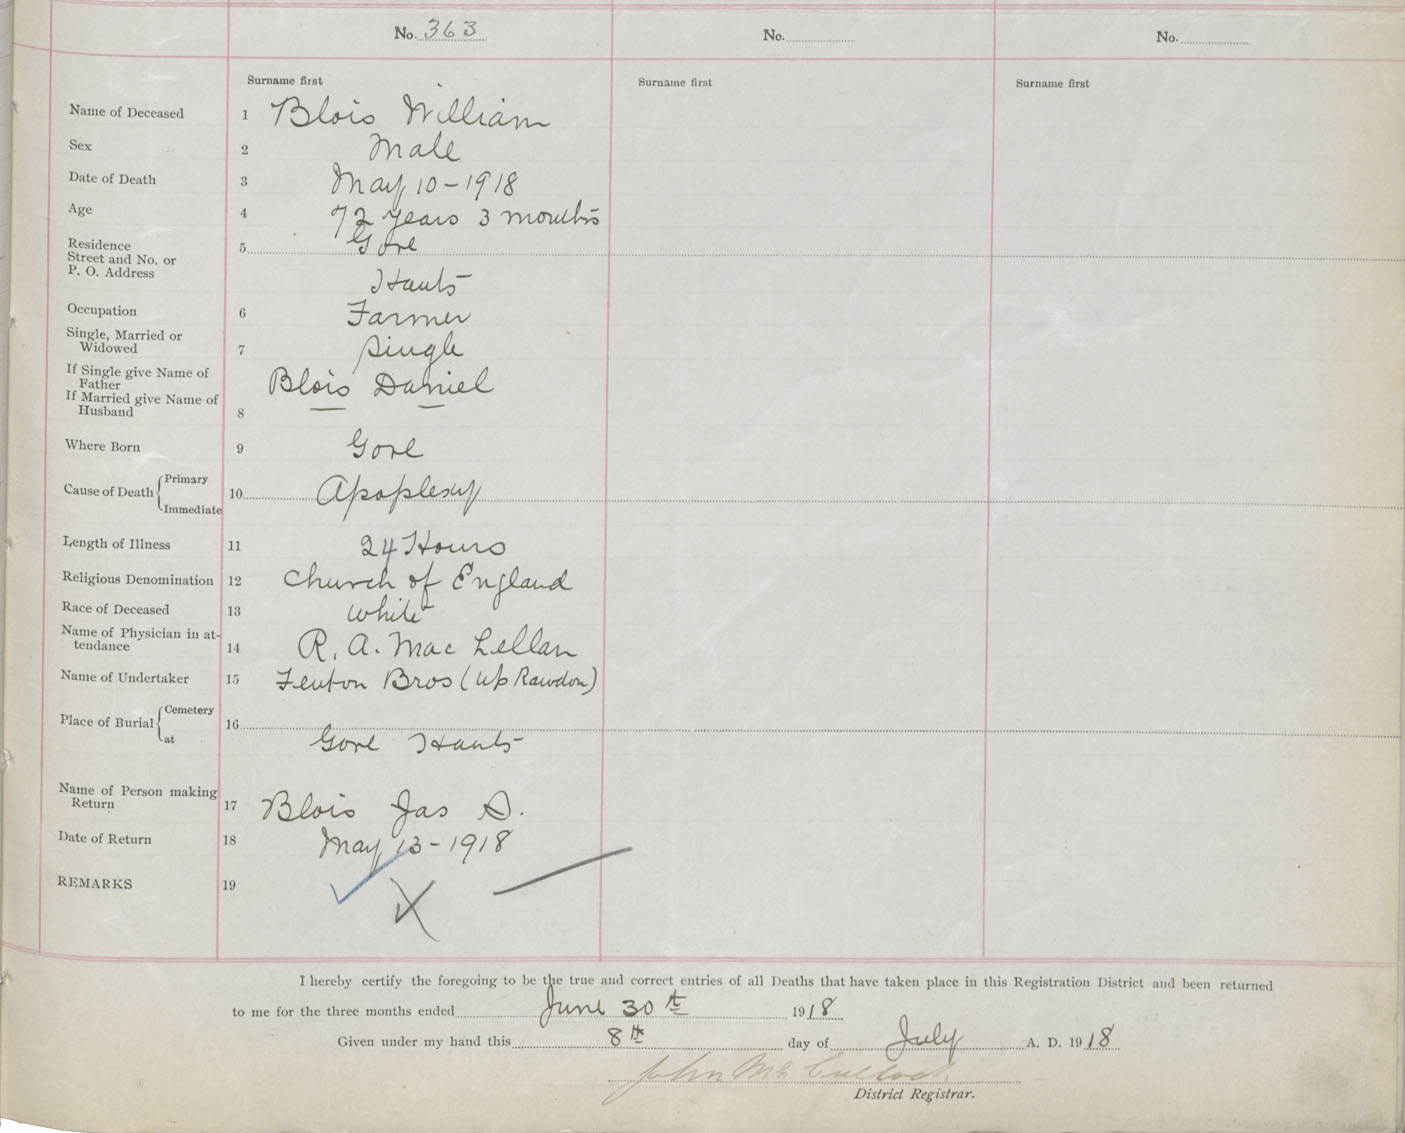 No. 363 No. No.
Surname first Surname first Surname first
Name of Deceased 1 Blois William
Sex 2 Male
Date of Death 3 May 10-1918
Age 4 72 years 3 months
Residence 5 Gore
Street and No. or
P. O. Address Hants
Occupation 6 Farmer
Single, Married or
Widowed 7 Single
If Single give Name of
Father Blois Daniel
If Married give Name of
Husband 8
Where Born 9 Gore
Primary
Cause of Death 10 Apoplexy
Immediate
Length of Illness 11 24 Hours
Religious Denomination 12 Church of England
Race of Deceased 13 White
Name of Physician in at-
tendance 14 R. A. Mac Lellan
Name of Undertaker 15 Fenton Bros (Up Rawdon)
Cemetery
Place of Burial 16
at Gore Hants
Name of Person making
Return 17 Blois Jas D.
Date of Return 18 May 13-1918
REMARKS 19
I hereby certify the foregoing to be the true and correct entries of all Deaths that have taken place in this Registration District and been returned
to me for the three months ended June 30th 1918
Given under my hand this 8th day of July A. D. 1918
John McCulloch
District Registrar.